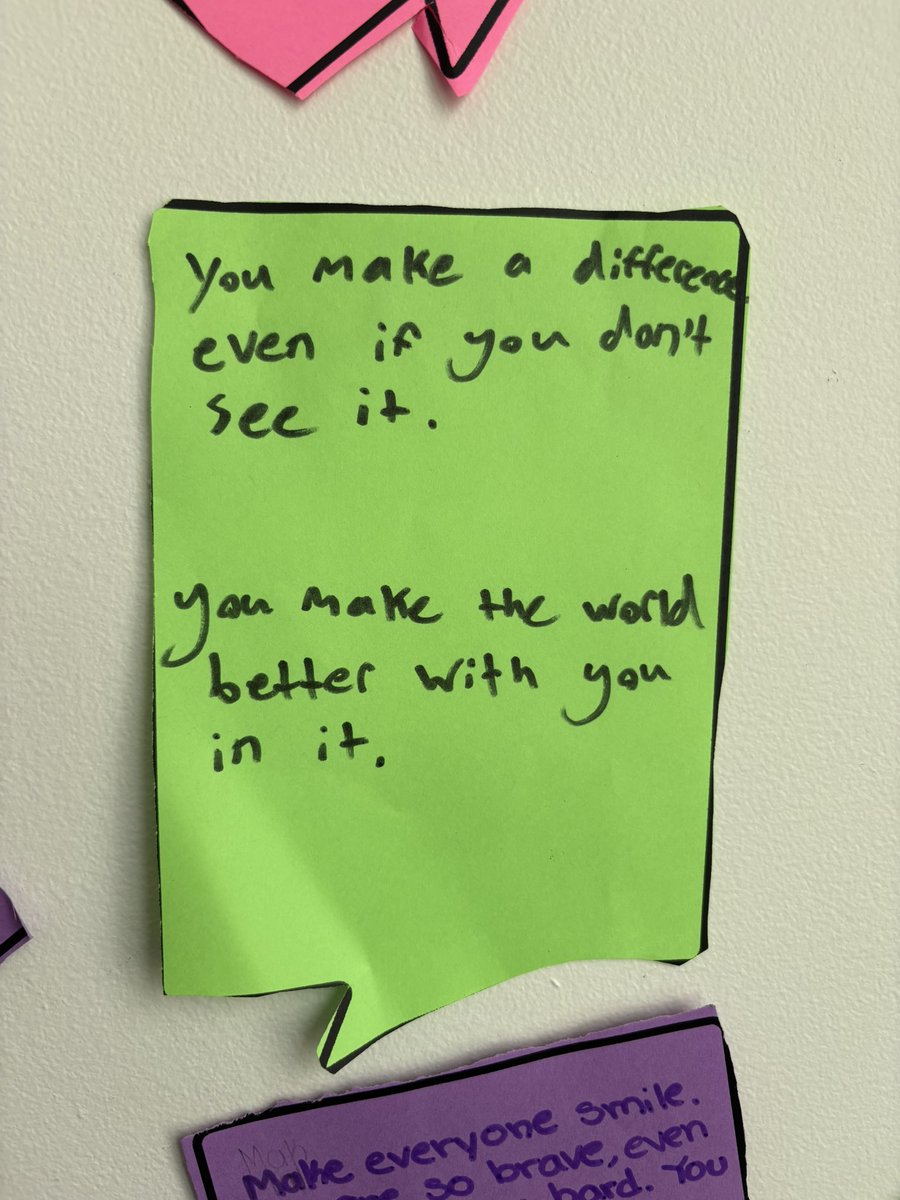 You make a difference
even if you don't
see it.
you make the world
better with you
in it.
Make everyone smile.
so brave, even
hard. You